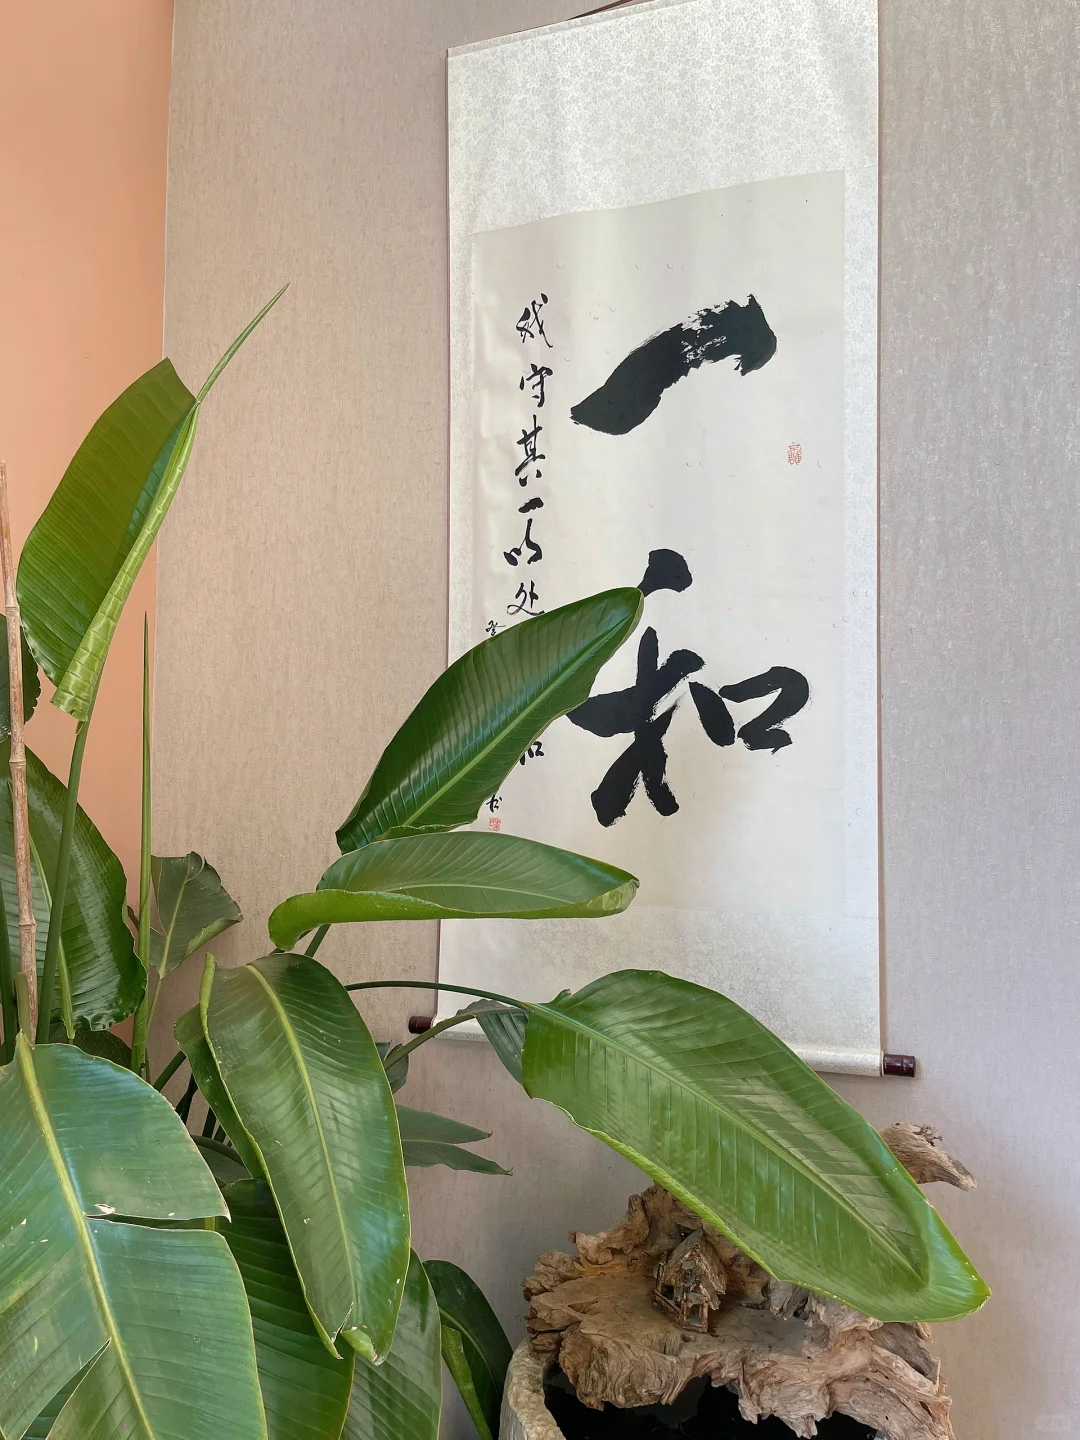 一和
我守其一以处
和
书